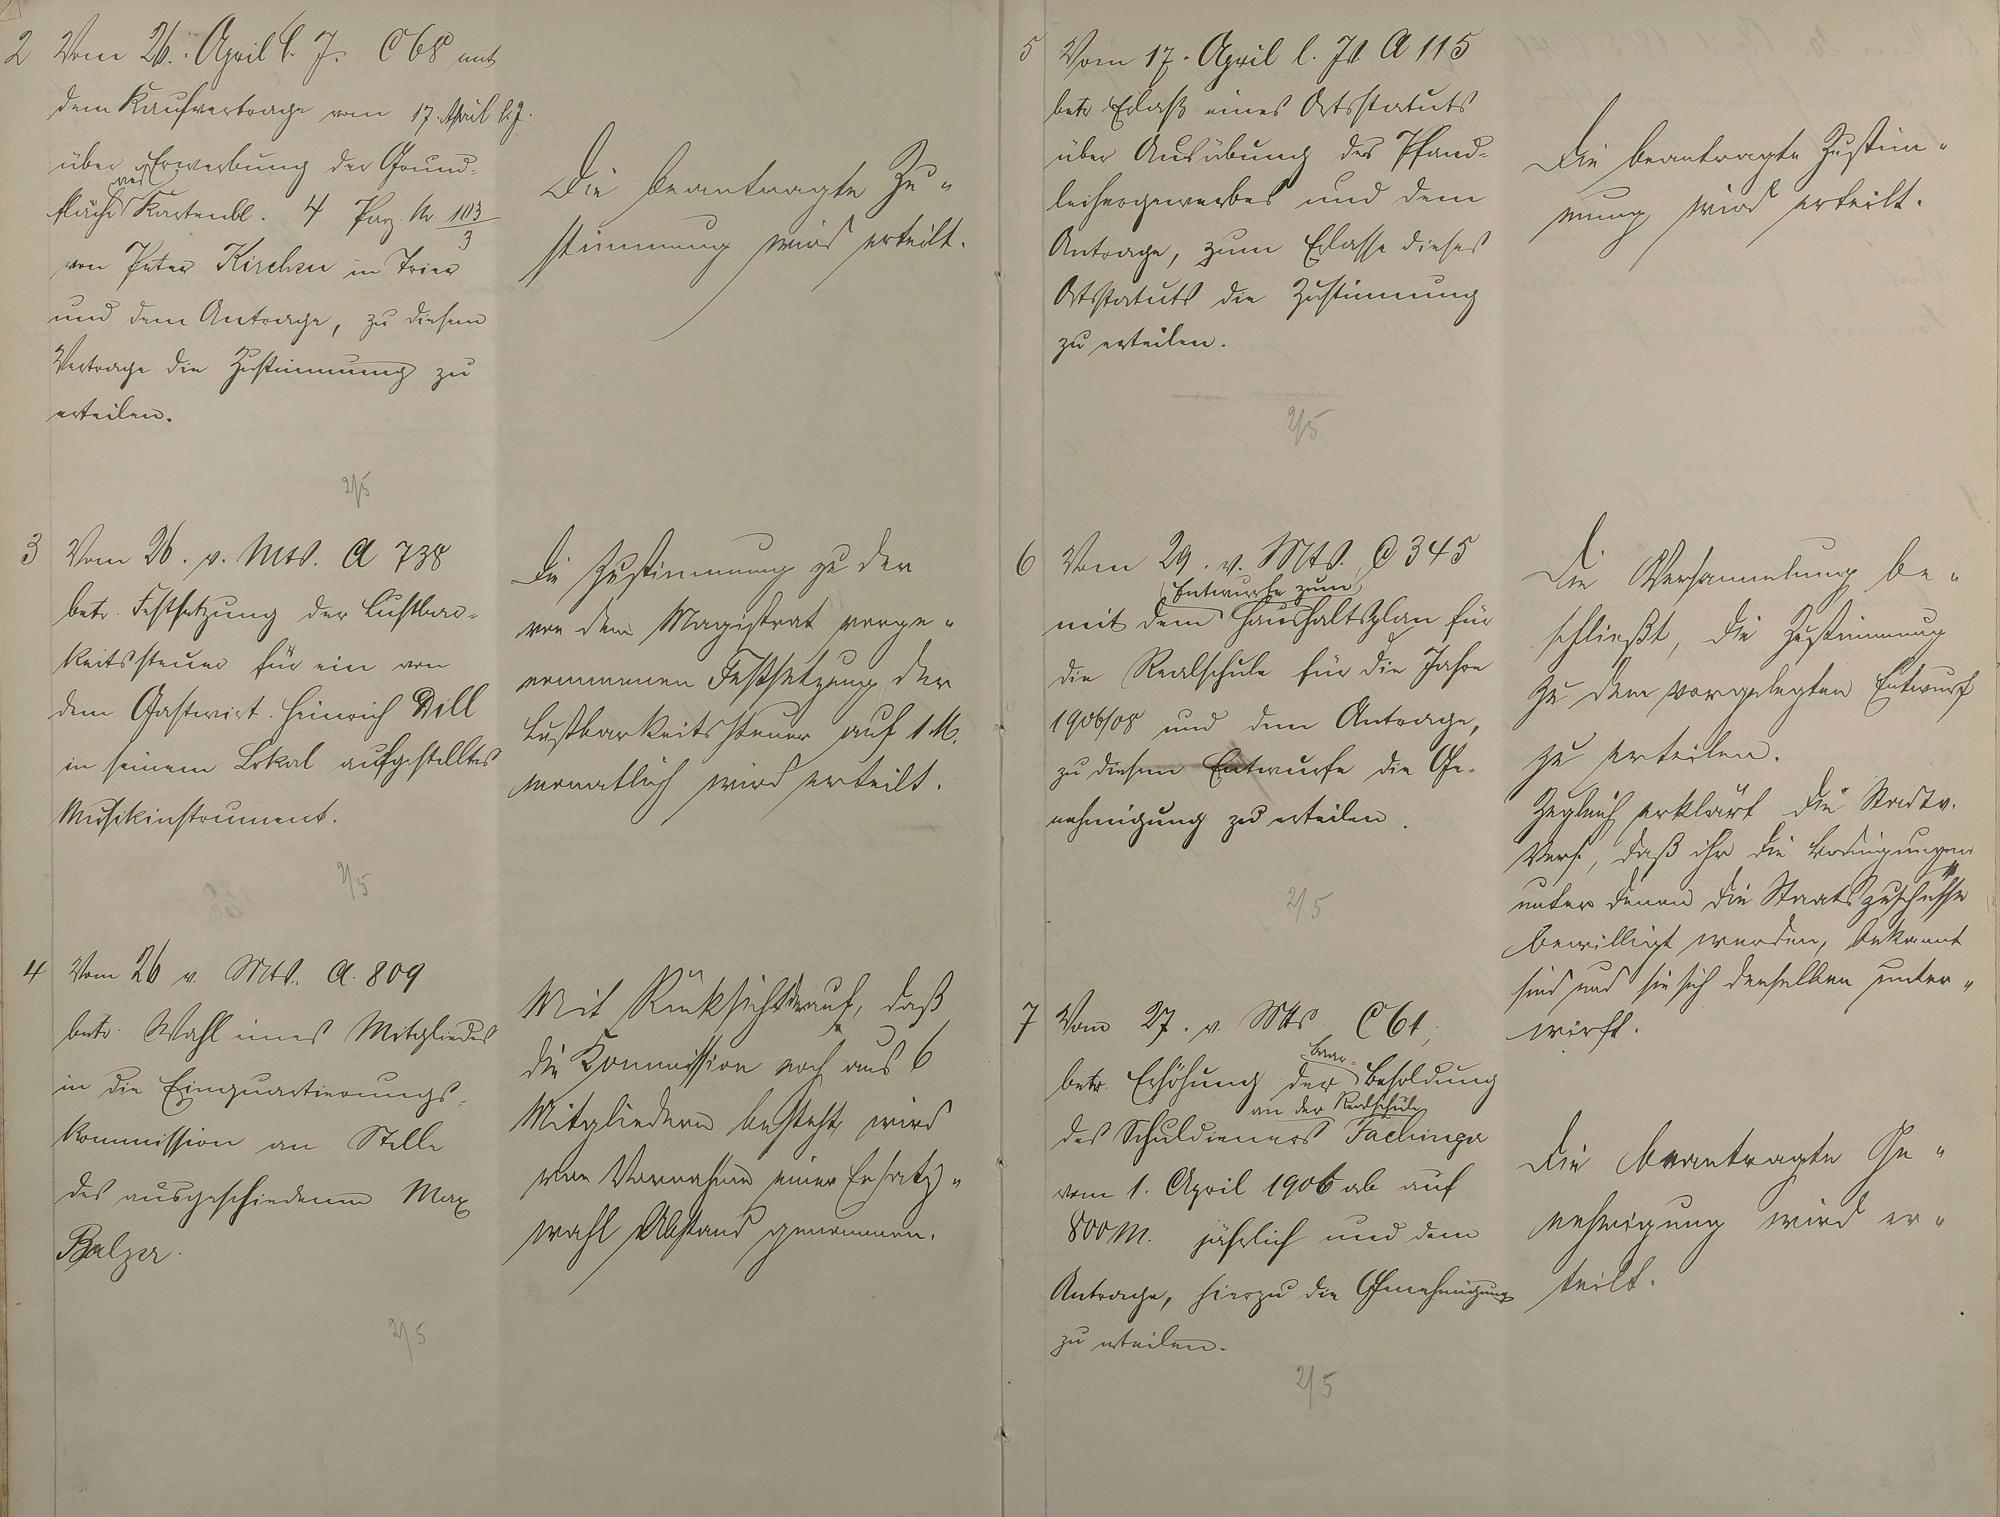 2 Vom 26. April l. J. C 68 mit
dem Kaufvertrage vom 17. April l. J.
über Erwerbung der Grund-
fläche Kartenbl. 4 Parz. Nr. 103/3
von Peter Kirchen in Trier
und dem Antrage, zu diesem
Vertrage die Zustimmung zu
erteilen.
2/5
Die beantragte Zu-
stimmung wird erteilt.
3 Vom 26. v. Mts. A 738
betr. Festsetzung der Lustbar-
keitssteuer für ein von
dem Gastwirt Heinrich Dill
in seinem Lokal aufgestelltes
Musikinstrument.
2/5
Die Zustimmung zu der
von dem Magistrat vorge-
nommenen Festsetzung der
Lustbarkeitssteuer auf 1 M.
monatlich wird erteilt.
4 Vom 26 v. Mts. A. 809
betr. Wahl eines Mitgliedes
in die Einquartierungs-
kommission an Stelle
des ausgeschiedenen Max
Balzer.
2/5
Mit Rücksicht darauf, daß
die Kommission noch aus 6
Mitgliedern besteht, wird
von Vornahme einer Ersatz-
wahl Abstand genommen.
5 Vom 17. April l. Js A 115
betr Erlaß eines Ortsstatuts
über Ausübung des Pfand-
leihergewerbes und dem
Antrage, zum Erlasse dieses
Ortsstatuts die Zustimmung
zu erteilen.
2/5
Die beantragte Zustim-
mung wird erteilt.
6 Vom 29. v. Mts. C 345
Entwurfe zum
mit dem Haushaltsplan für
die Realschule für die Jahre
1906/08 und dem Antrage,
zu diesem Entwurfe die Ge-
nehmigung zu erteilen.
2/5
Die Versammlung be-
schließt, die Zustimmung
zu dem vorgelegten Entwurf
zu erteilen.
Zugleich erklärt die Stadtv.
Vers., daß ihr die Bedingungen
unter denen die Staatszuschüsse
bewilligt werden, bekannt
sind und sie sich denselben unter-
wirft.
7 Vom 27. v Mts C 61,
baar-
betr. Erhöhung der Besoldung
an der Realschule
des Schuldieners Fachinger
vom 1. April 1906 ab auf
800 M. jährlich und dem
Antrage, hierzu die Genehmigung
zu erteilen.
2/5
Die beantragte Ge-
nehmigung wird er-
teilt.